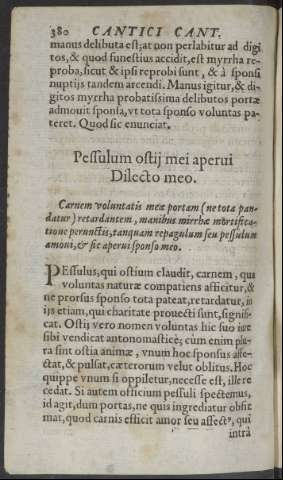 380 CANTICI CANT.
manus delibuta est; at non perlabitur ad digi
tos, & quod funestius accidit, est myrrha re-
proba, sicut & ipsi reprobi sunt, & à sponsi
nuptijs tandem arcendi. Manus igitur, & di-
gitos myrrha probatissima delibutos portæ
admouit sponsa, vt tota sponso voluntas pa-
teret. Quod sic enunciat.
Pessulum ostij mei aperui
Dilecto meo.
Carnem voluntatis meæ portam (ne tota pan-
datur) retardantem, manibus mirrhæ mortifica-
tione perunctis, tanquam repagulum seu pessulum
amoui, & sic aperui sponso meo.
PEssulus, qui ostium claudit, carnem, qua
voluntas naturæ compatiens afficitur, &
ne prorsus sponso tota pateat, retardatur, in
ijs etiam, qui charitate prouecti sunt, signifi-
cat. Ostij vero nomen voluntas hic suo iure
sibi vendicat antonomasticè; cùm enim plu-
ra sint ostia animæ, vnum hoc sponsus affe-
ctat, & pulsat, cæterorum velut oblitus. Hoc
quippe vnum si oppiletur, necesse est, ille re
cedat. Si autem officium pessuli spectemus,
id agit, dum portas, ne quis ingrediatur obfir
mat, quod carnis efficit amor seu affectꝰ, qui
intrà